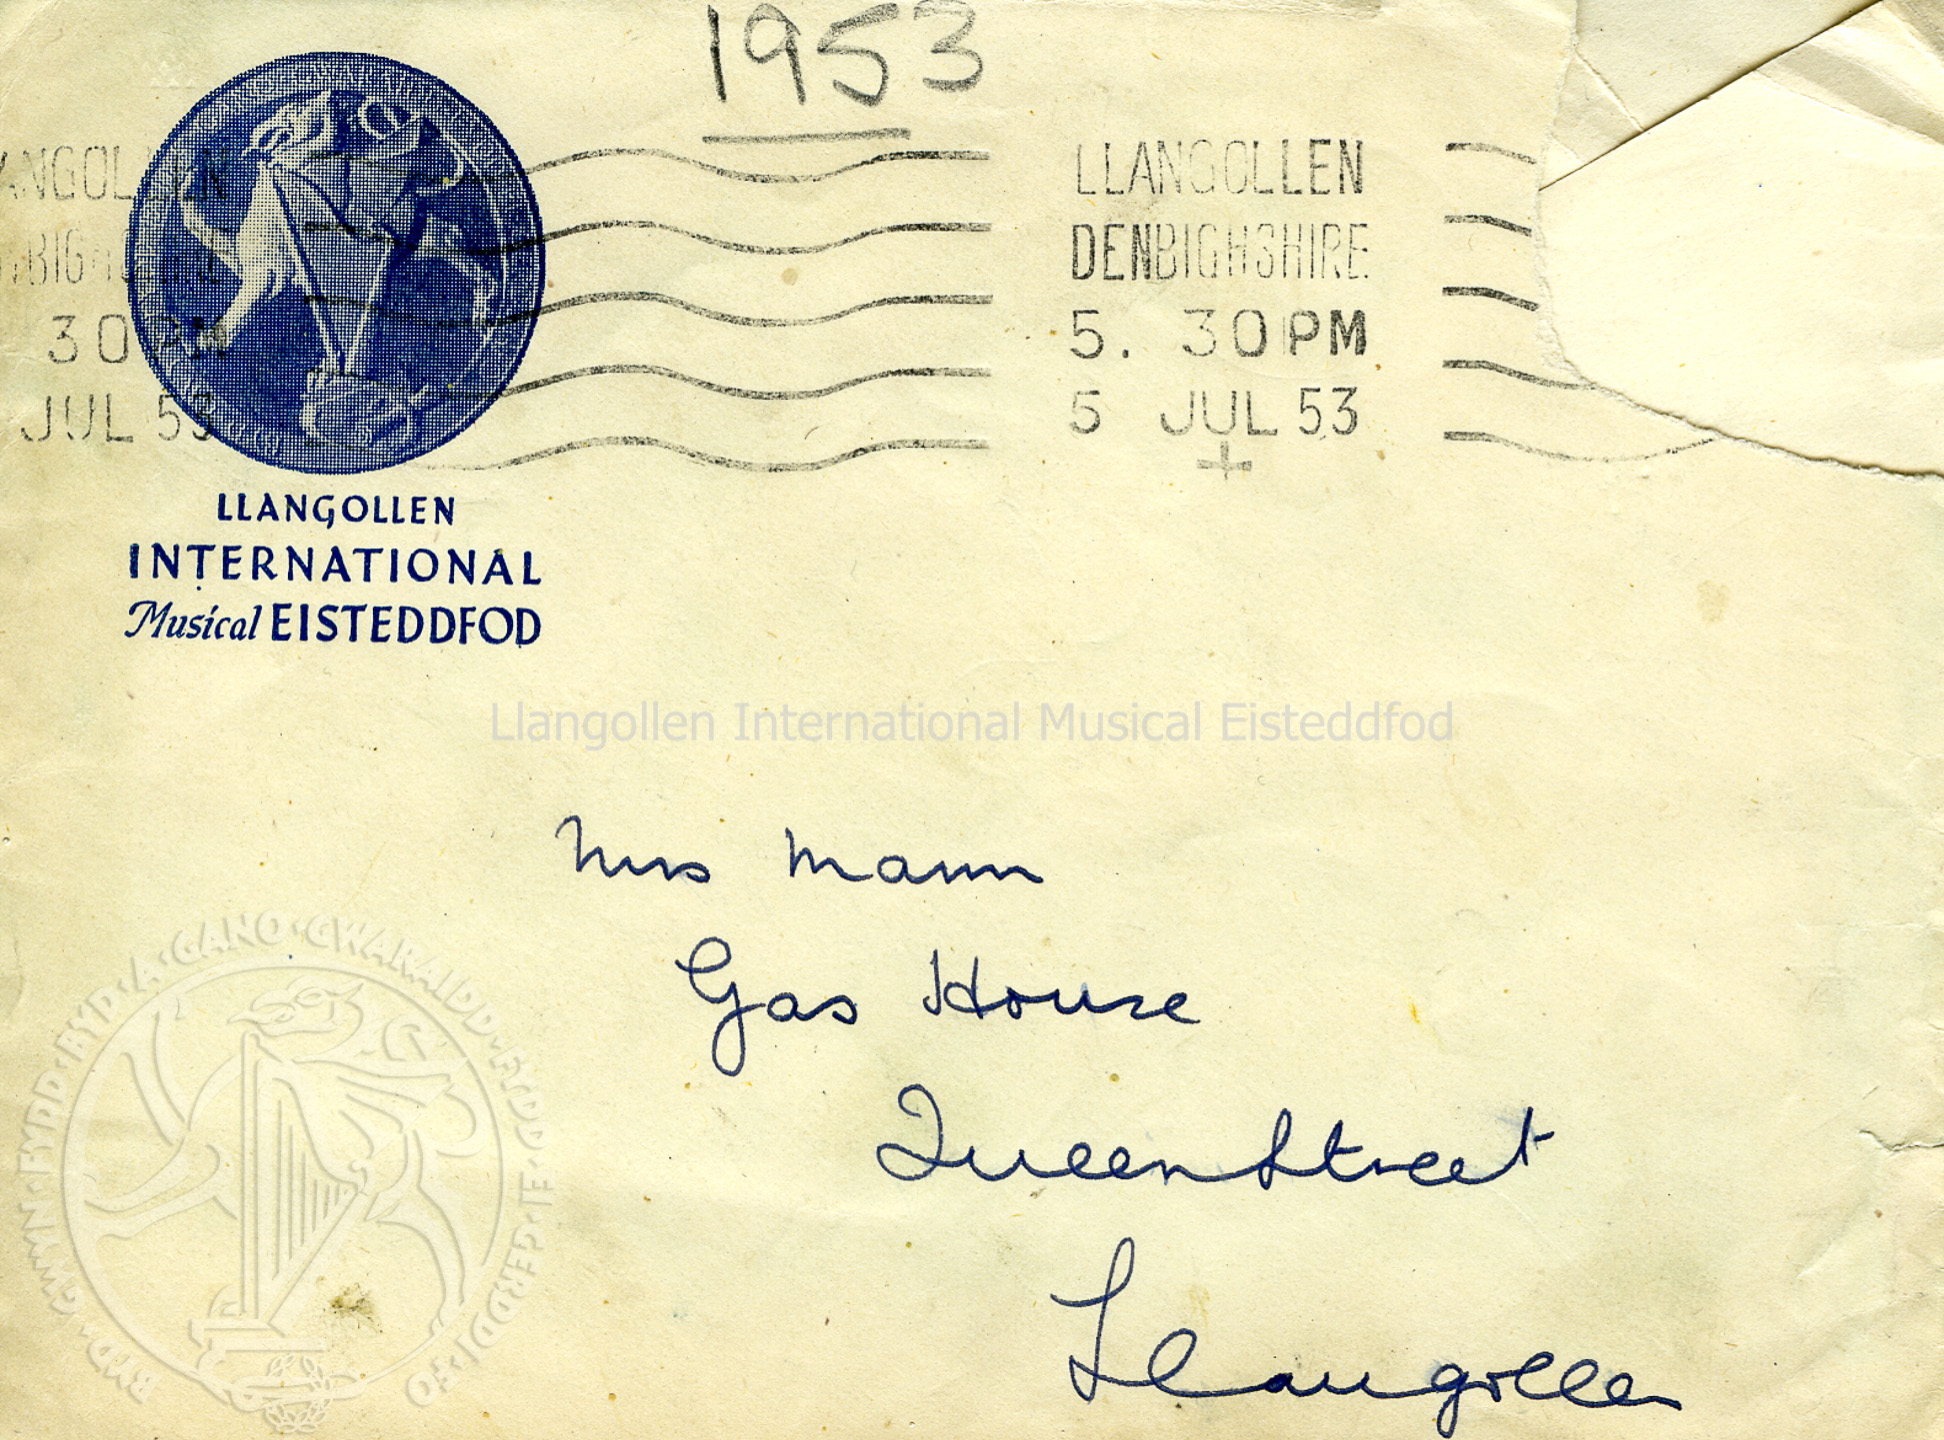 1953
LLANGOLLEN
DENBIGHSHIRE
5. 30 PM
5 JUL 53
ANGOLLEN
30 PM
JUL 53
LLANGOLLEN
INTERNATIONAL
Musical EISTEDDFOD
Llangollen International Musical Eisteddfod
Mrs Mann
Gas House
Queen Street
Llangollen
BYD · GWYN · FYDD · BYD · A · GANO · GWARAIDD · FYDD · EI · GERDDI · FO